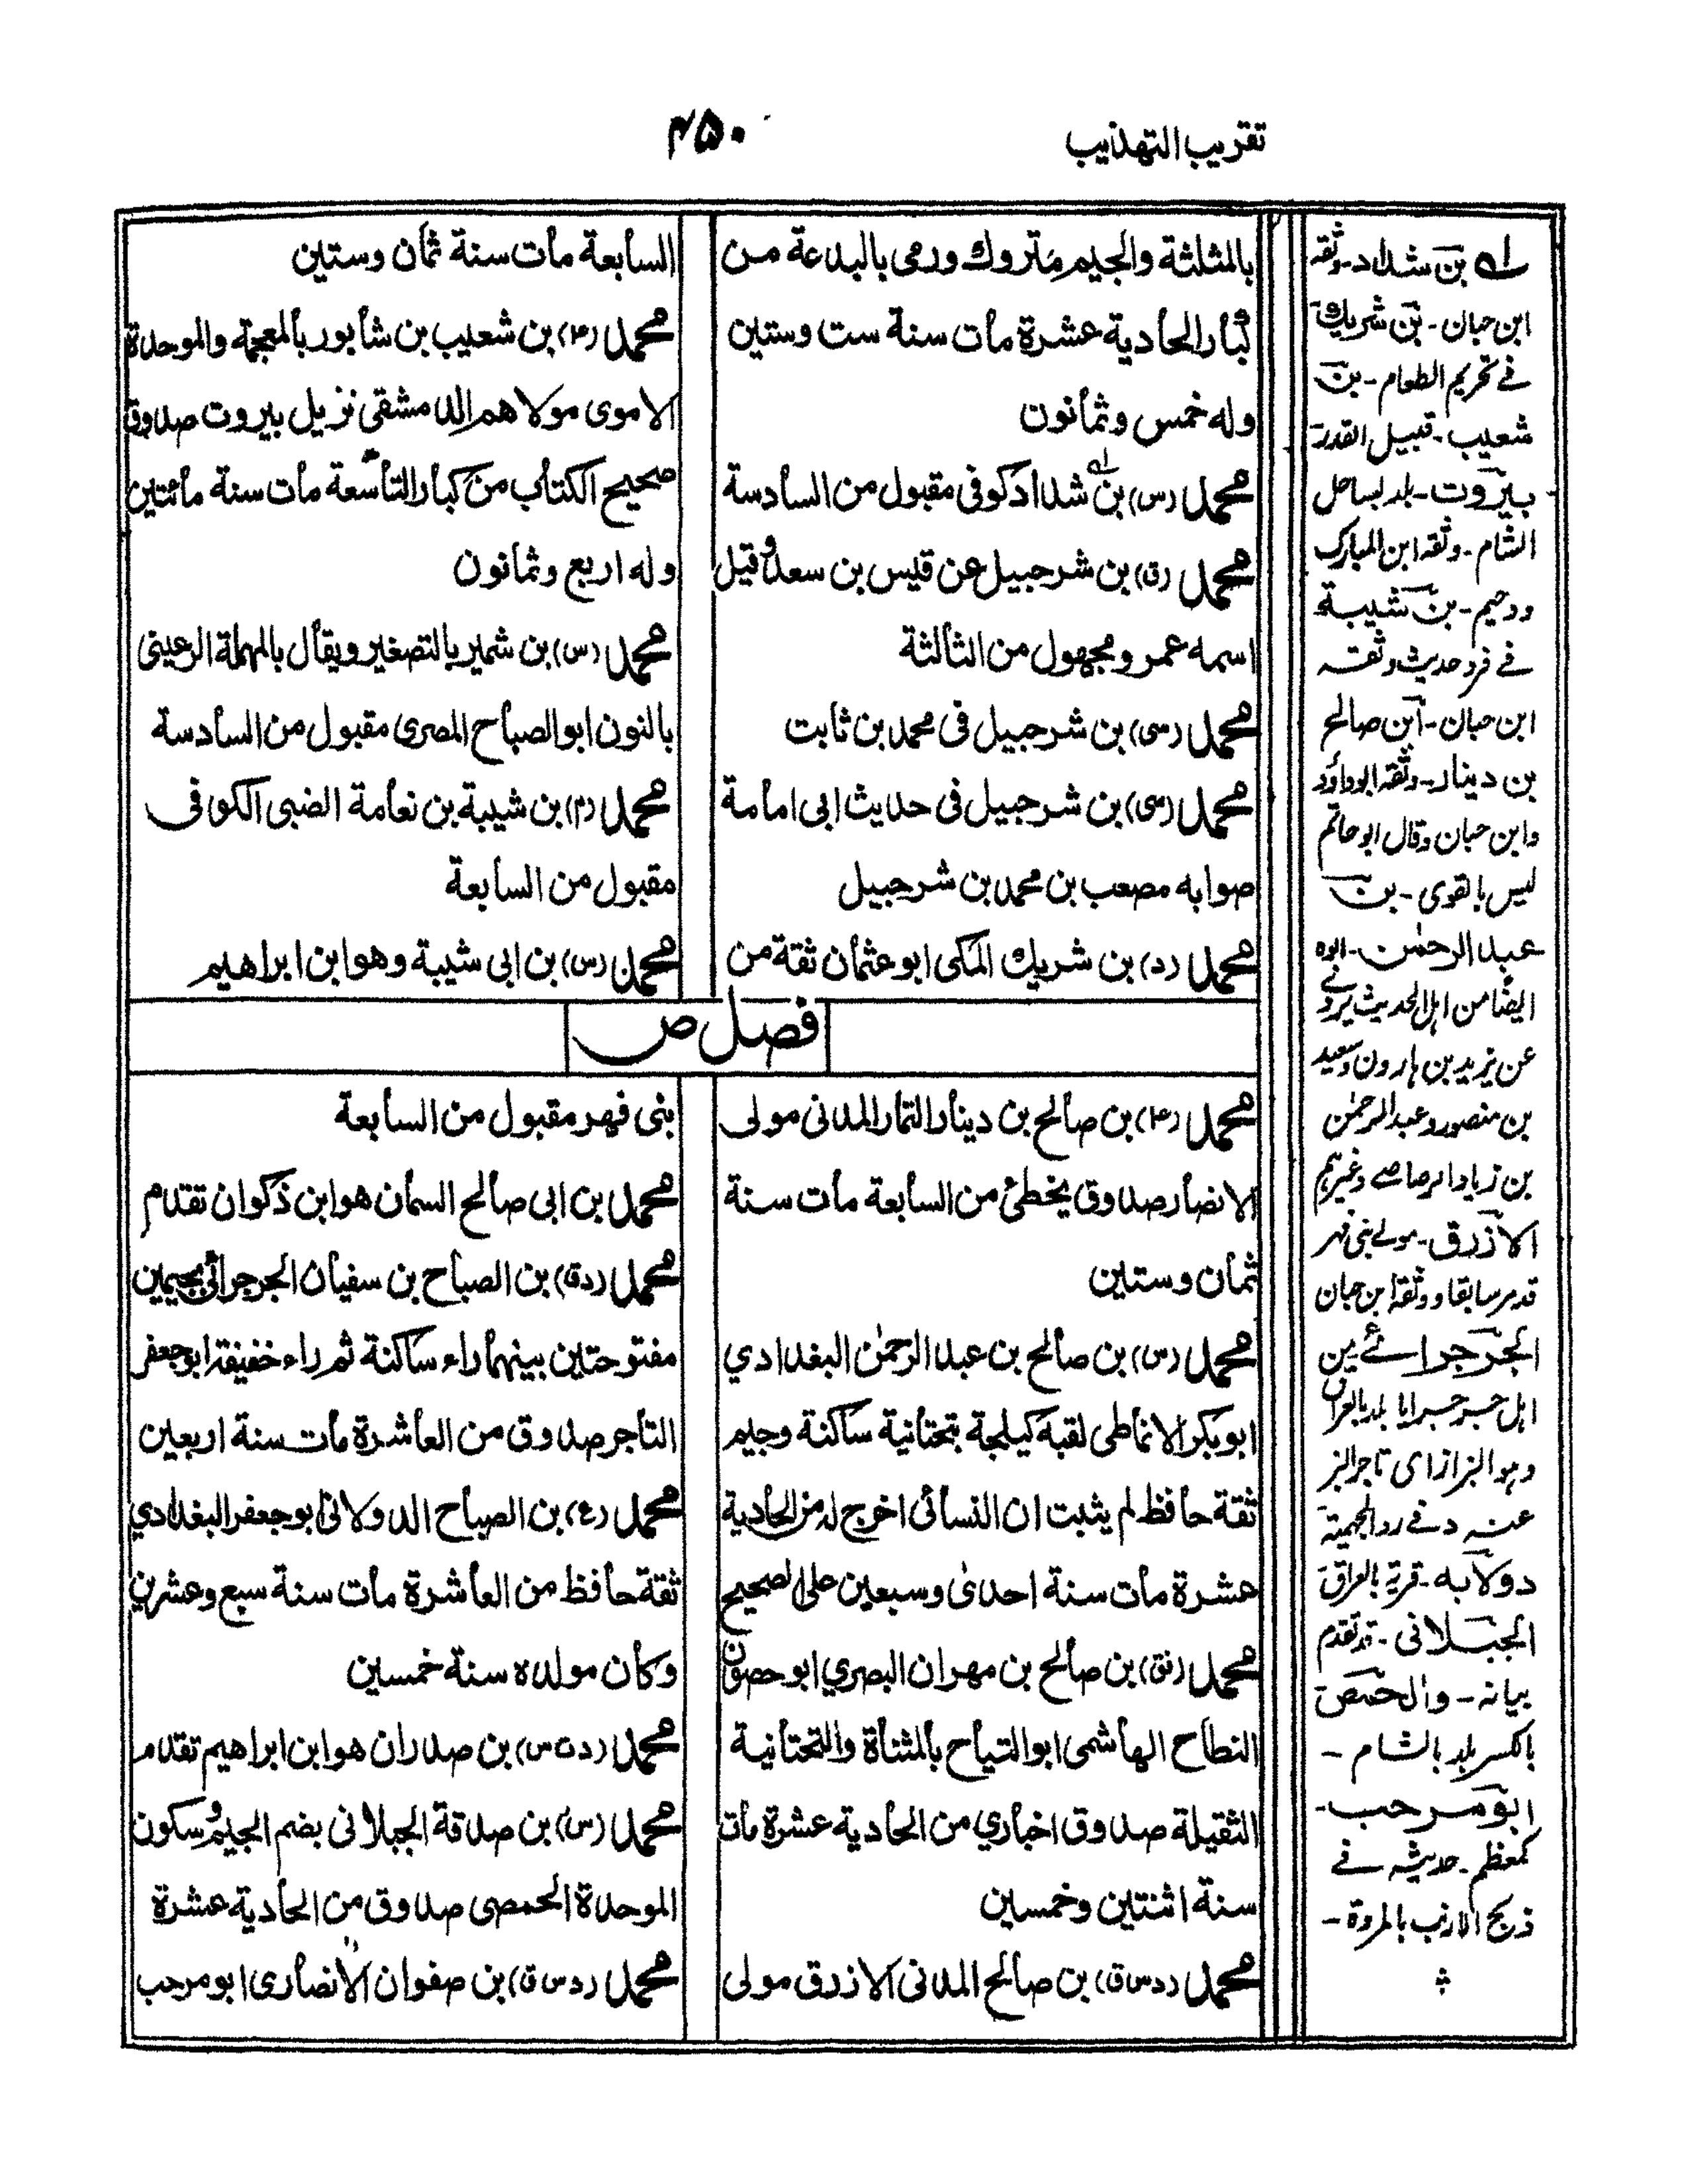 تقريب التهذيب
۴۵۰
بالمثلثة والجيم متروك ورمى بالبدعة من
كبار الحادية عشرة مات سنة ست وستين
وله خمس وثمانون
محمد (س) بن شداد كوفى مقبول من السادسة
محمد (ق) بن شرحبيل عن قيس بن سعد وقيل
اسمه عمرو مجهول من الثالثة
محمد (سى) بن شرحبيل فى محمد بن ثابت
محمد (سى) بن شرحبيل فى حديث ابى امامة
صوابه مصعب بن محمد بن شرحبيل
محمد (د) بن شريك المكى ابو عثمان ثقة من
السابعة مات سنة ثمان وستين
محمد (۴) بن شعيب بن شابور بالمعجمة والموحدة
الاموى مولاهم الدمشقى نزيل بيروت صدوق
صحيح الكتاب من كبار التاسعة مات سنة مائتين
وله اربع وثمانون
محمد (س) بن شمير بالتصغير ويقال بالمهملة الرعينى
بالنون ابو الصباح المصرى مقبول من السادسة
محمد (م) بن شيبة بن نعامة الضبى الكوفى
مقبول من السابعة
محمد (س) بن ابى شيبة وهو ابن ابراهيم
فصل ص
محمد (۴) بن صالح بن دينار التمار المدنى مولى
الانصار صدوق يخطئ من السابعة مات سنة
ثمان وستين
محمد (س) بن صالح بن عبد الرحمٰن البغدادي
ابوبكر الانماطى لقبه كيلجة بتحتانية ساكنة وجيم
ثقة حافظ لم يثبت ان النسائى اخرج له من الحادية
عشرة مات سنة احدىٰ وسبعين على الصحيح
محمد (تق) بن صالح بن مهران البصري ابو حصون
النطاح الهاشمى ابو التياح بالمثناة والتحتانية
الثقيلة صدوق اخباري من الحادية عشرة مات
سنة اثنتين وخمسين
محمد (د س ق) بن صالح المدنى الازرق مولى
بنى فهر مقبول من السابعة
محمد بن ابى صالح السمان هو ابن ذكوان تقدم
محمد (دق) بن الصباح بن سفيان الجرجرائى بجيمين
مفتوحتين بينهما راء ساكنة ثم راء خفيفة ابو جعفر
التاجر صدوق من العاشرة مات سنة اربعين
محمد (ع) بن الصباح الدولابى ابو جعفر البغدادي
ثقة حافظ من العاشرة مات سنة سبع وعشرين
وكان مولده سنة خمسين
محمد (د ت س) بن صدران هو ابن ابراهيم تقدم
محمد (س) بن صدقة الجبلانى بضم الجيم وسكون
الموحدة الحمصى صدوق من الحادية عشرة
محمد (د س ق) بن صفوان الانصارى ابو مرحب
له بن شداد - وثقه
ابن حبان - بن شريك
فے تحريم الطعام - بن
شعيب - قبيل القدر
بيروت - بلد بساحل
الشام - وثقه ابن المبارك
ودحيم - بن شيبة
فے فرد حديث وثقه
ابن حبان - ابن صالح
بن دينار - وثقه ابوداؤد
وابن حبان وقال ابو حاتم
ليس بالقوى - بن
عبد الرحمٰن -
ايضا من اہل الحديث يروى
عن يزيد بن ہارون وسعيد
بن منصور وعبد الرحمٰن
بن زياد الرصاصے وغيرہم
الازرق - مولے بنى فہر
قد مر سابقا ووثقه ابن حبان
الجرجرائے من
اہل جرجرايا بلد بالعراق
وہو البزاز اى تاجر البز
عنہ د فے رد الجهمية
دولابه - قرية بالعراق
الجبلانى - قد تقدم
بيانه - والحمص
بالكسر بلد بالشام -
ابو مرحب -
كمعظم - حديثہ فے
ذبح الارنب بالمروة -